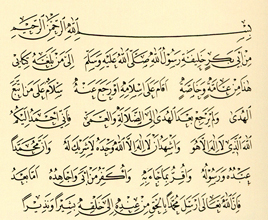 بسم الله الرحمن الرحيم
من أبي بكر خليفة رسول الله صلى الله عليه وسلم إلى من بلغه كتابي
هذا من عامة وخاصة أقام على إسلامه أو رجع عنه سلام على من اتبع
الهدى ولم يرجع بعد الهدى إلى الضلالة والعمى فإني أحمد إليكم
الله الذي لا إله إلا هو وأشهد أن لا إله إلا الله وحده لا شريك له وأن محمدا
عبده ورسوله وأقر بما جاء به وأكفر من أبى وأجاهده أما بعد
فإن الله تعالى أرسل محمدا بالحق من عنده إلى خلقه بشيرا ونذيرا